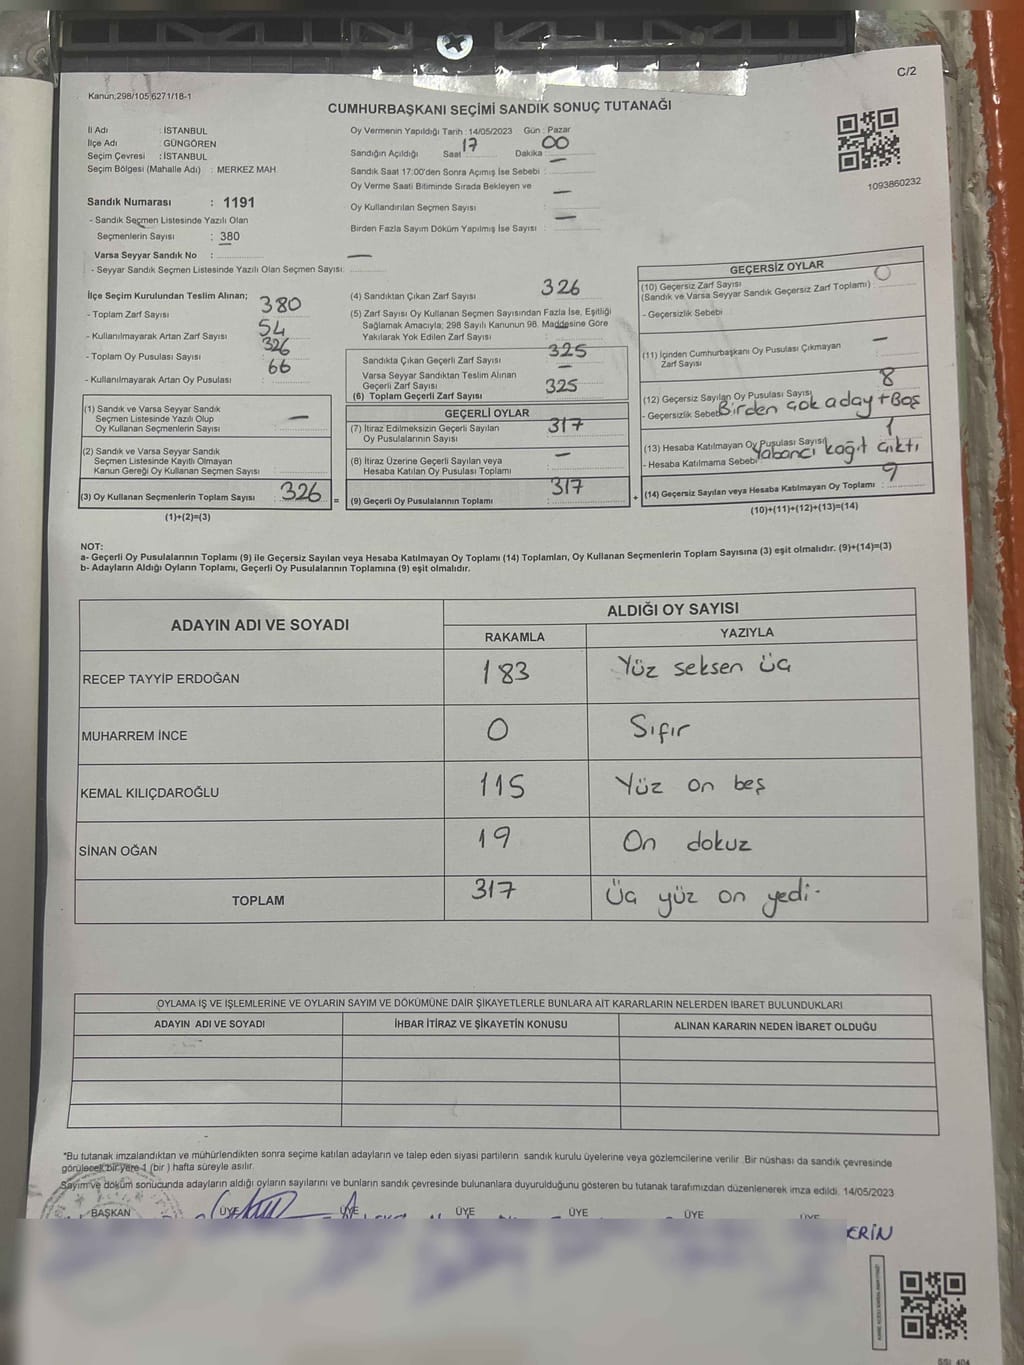 C/2
Kanun,298/105,6271/18-1
CUMHURBAŞKANI SEÇİMİ SANDIK SONUÇ TUTANAĞI
İl Adı : İSTANBUL
İlçe Adı : GÜNGÖREN
Seçim Çevresi : İSTANBUL
Seçim Bölgesi (Mahalle Adı) : MERKEZ MAH.
Oy Vermenin Yapıldığı Tarih : 14/05/2023 Gün : Pazar
Sandığın Açıldığı Saat : 17 Dakika : 00
Sandık Saat 17:00'den Sonra Açımış İse Sebebi : —
Oy Verme Saati Bitiminde Sırada Bekleyen ve
Oy Kullandırılan Seçmen Sayısı —
Birden Fazla Sayım Döküm Yapılmış İse Sayısı : —
1093860232
Sandık Numarası : 1191
- Sandık Seçmen Listesinde Yazılı Olan
Seçmenlerin Sayısı : 380
Varsa Seyyar Sandık No :
- Seyyar Sandık Seçmen Listesinde Yazılı Olan Seçmen Sayısı: —
İlçe Seçim Kurulundan Teslim Alınan;
- Toplam Zarf Sayısı : 380
- Kullanılmayarak Artan Zarf Sayısı : 54
- Toplam Oy Pusulası Sayısı : 326
- Kullanılmayarak Artan Oy Pusulası : 66
(1) Sandık ve Varsa Seyyar Sandık
Seçmen Listesinde Yazılı Olup
Oy Kullanan Seçmenlerin Sayısı : —
(2) Sandık ve Varsa Seyyar Sandık
Seçmen Listesinde Kayıtlı Olmayan
Kanun Gereği Oy Kullanan Seçmen Sayısı
(3) Oy Kullanan Seçmenlerin Toplam Sayısı : 326 =
(1)+(2)=(3)
(4) Sandıktan Çıkan Zarf Sayısı : 326
(5) Zarf Sayısı Oy Kullanan Seçmen Sayısından Fazla İse, Eşitliği
Sağlamak Amacıyla; 298 Sayılı Kanunun 98. Maddesine Göre
Yakılarak Yok Edilen Zarf Sayısı : —
Sandıkta Çıkan Geçerli Zarf Sayısı : 325
Varsa Seyyar Sandıktan Teslim Alınan
Geçerli Zarf Sayısı : —
(6) Toplam Geçerli Zarf Sayısı : 325
GEÇERLİ OYLAR
(7) İtiraz Edilmeksizin Geçerli Sayılan
Oy Pusulalarının Sayısı : 317
(8) İtiraz Üzerine Geçerli Sayılan veya
Hesaba Katılan Oy Pusulası Toplamı : —
(9) Geçerli Oy Pusulalarının Toplamı : 317 +
GEÇERSİZ OYLAR
(10) Geçersiz Zarf Sayısı
(Sandık ve Varsa Seyyar Sandık Geçersiz Zarf Toplamı) : 0
- Geçersizlik Sebebi :
(11) İçinden Cumhurbaşkanı Oy Pusulası Çıkmayan
Zarf Sayısı : —
(12) Geçersiz Sayılan Oy Pusulası Sayısı : 8
- Geçersizlik Sebebi Birden çok aday + Boş
(13) Hesaba Katılmayan Oy Pusulası Sayısı 1
- Hesaba Katılmama Sebebi Yabancı kağıt çıktı
(14) Geçersiz Sayılan veya Hesaba Katılmayan Oy Toplamı : 9
(10)+(11)+(12)+(13)=(14)
NOT:
a- Geçerli Oy Pusulalarının Toplamı (9) ile Geçersiz Sayılan veya Hesaba Katılmayan Oy Toplamı (14) Toplamları, Oy Kullanan Seçmenlerin Toplam Sayısına (3) eşit olmalıdır. (9)+(14)=(3)
b- Adayların Aldığı Oyların Toplamı, Geçerli Oy Pusulalarının Toplamına (9) eşit olmalıdır.
ADAYIN ADI VE SOYADI ALDIĞI OY SAYISI
RAKAMLA YAZIYLA
RECEP TAYYİP ERDOĞAN 183 Yüz seksen üç
MUHARREM İNCE 0 Sıfır
KEMAL KILIÇDAROĞLU 115 Yüz on beş
SİNAN OĞAN 19 On dokuz
TOPLAM 317 Üç yüz on yedi-
OYLAMA İŞ VE İŞLEMLERİNE VE OYLARIN SAYIM VE DÖKÜMÜNE DAİR ŞİKAYETLERLE BUNLARA AİT KARARLARIN NELERDEN İBARET BULUNDUKLARI
ADAYIN ADI VE SOYADI İHBAR İTİRAZ VE ŞİKAYETİN KONUSU ALINAN KARARIN NEDEN İBARET OLDUĞU
*Bu tutanak imzalandıktan ve mühürlendikten sonra seçime katılan adayların ve talep eden siyasi partilerin sandık kurulu üyelerine veya gözlemcilerine verilir .Bir nüshası da sandık çevresinde
görülecek bir yere 1 (bir ) hafta süreyle asılır.
Sayım ve döküm sonucunda adayların aldığı oyların sayılarını ve bunların sandık çevresinde bulunanlara duyurulduğunu gösteren bu tutanak tarafımızdan düzenlenerek imza edildi. 14/05/2023
BAŞKAN ÜYE ÜYE ÜYE ÜYE ÜYE ÜYE
ERİN